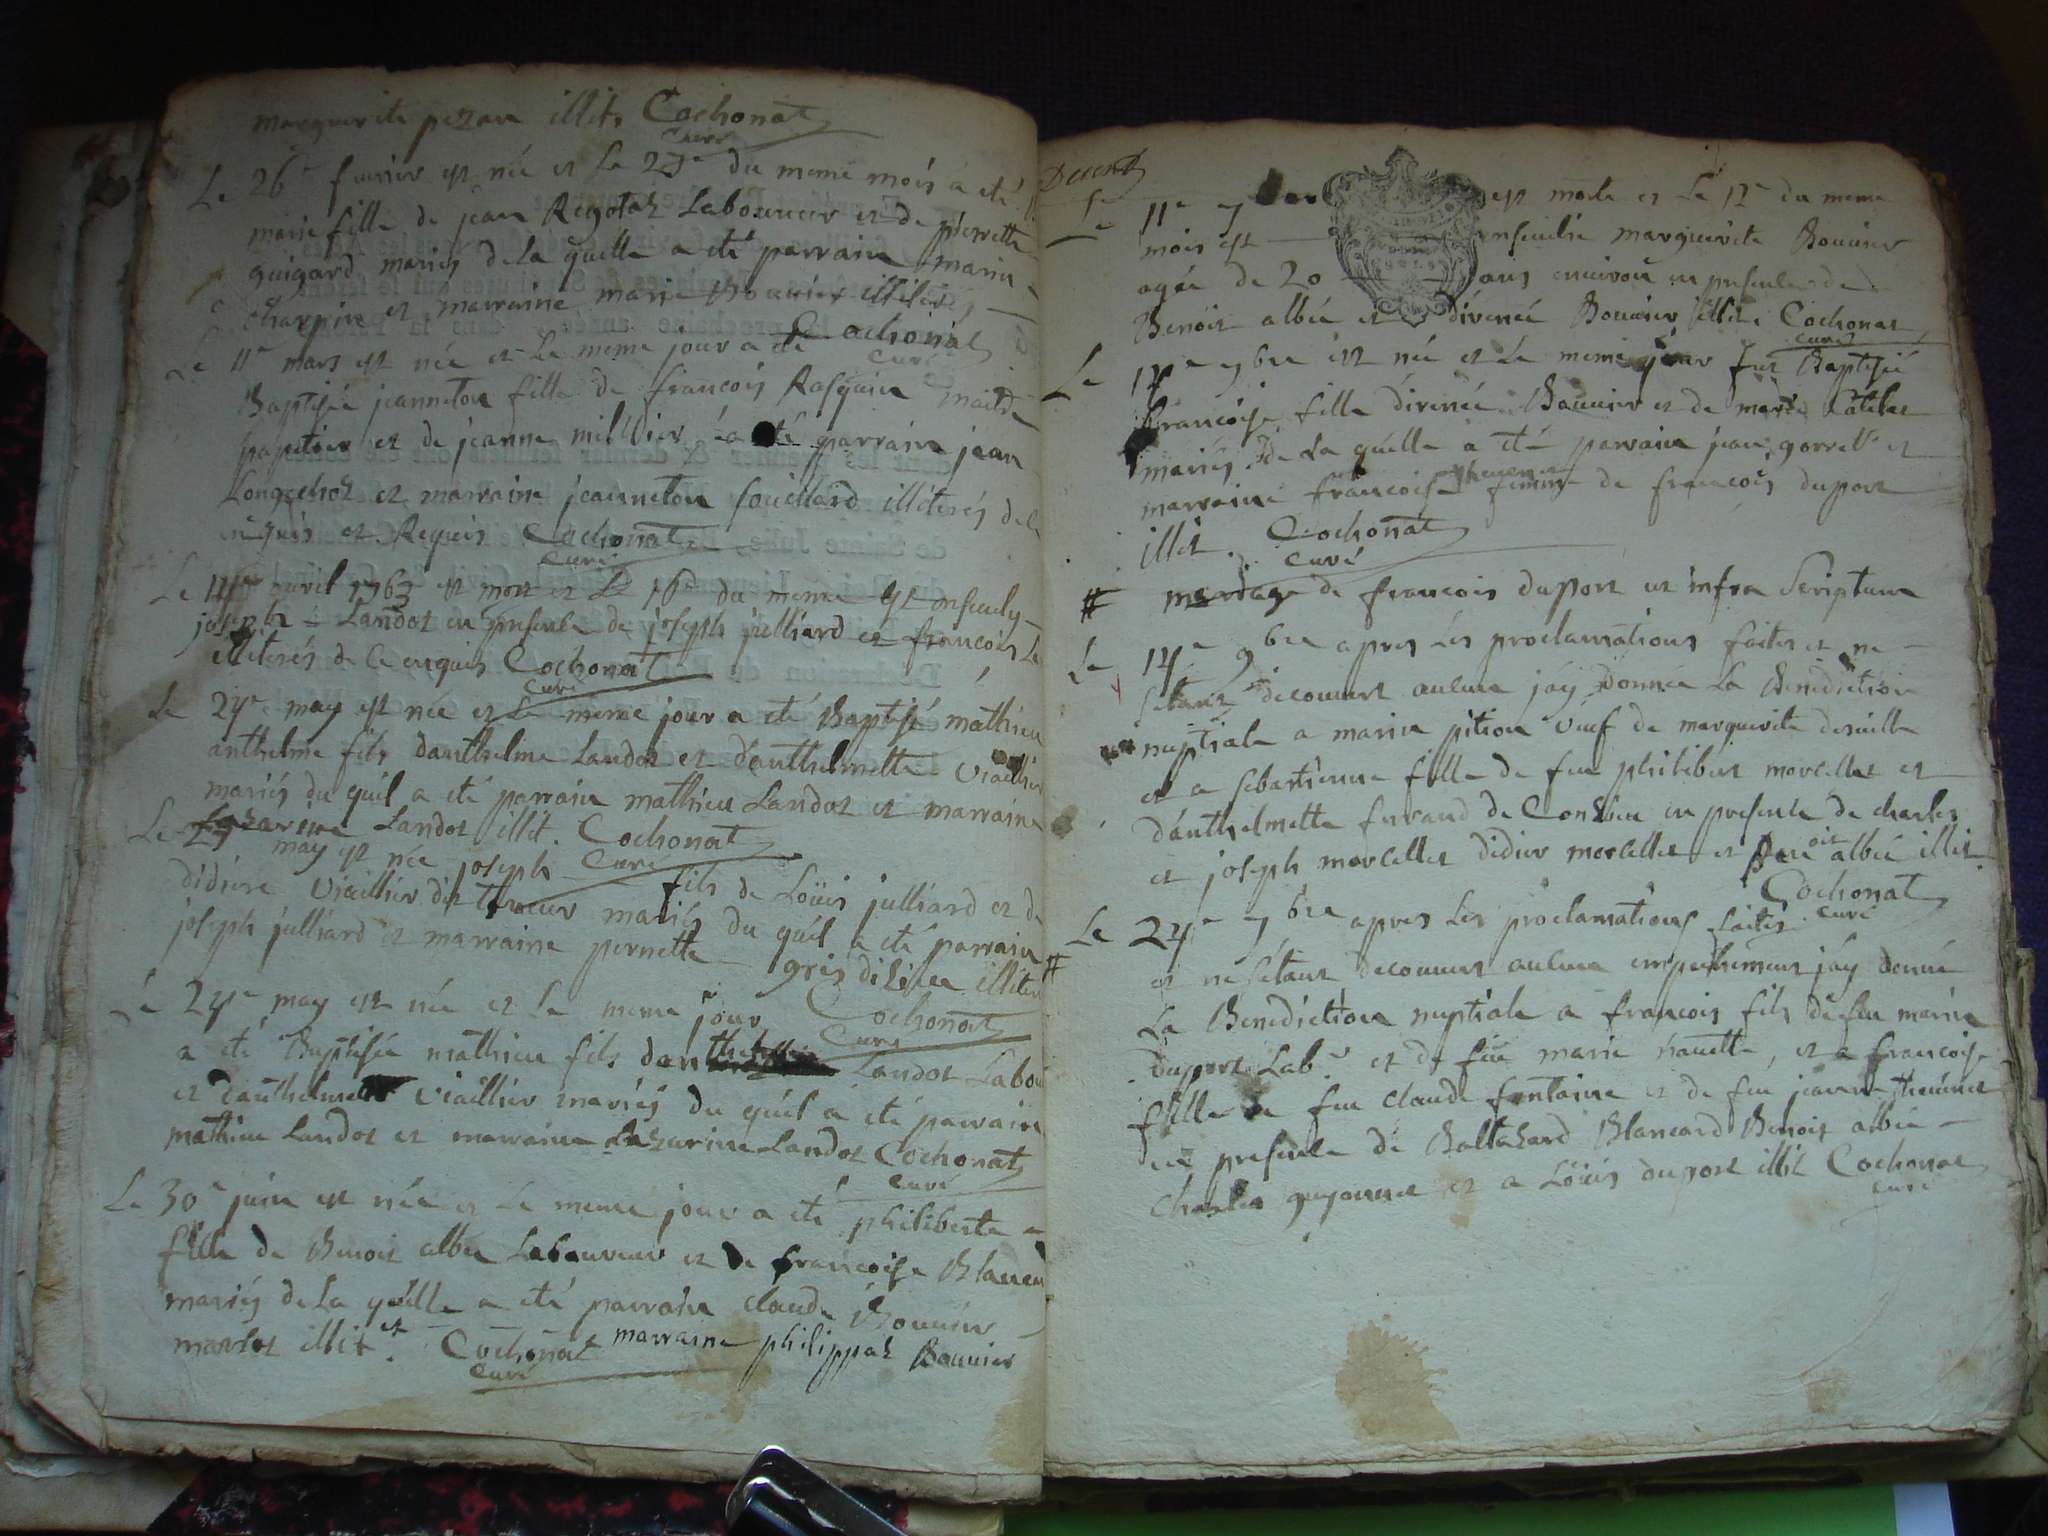 marguerite pezan illit. Cochonat
Curé
Le 26e fevrier est née et le 27e du meme mois a eté
marie fille de jean Regotaz Laboureur et de pierrette
guigard mariés de la quelle a eté parrain marin
Charpin et marraine marie Bouvier illiterés
Cochonat
Curé
Le 11e mars est née et le meme jour a eté
Baptisée jeanneton fille de francois Rasquin
papetier et de jeanne millier a eté parrain jean
Longechoz et marraine jeanneton Souillard illiterés de
enquis et Requis Cochonat
Curé
Le 14e avril 1763 est mort et le 16e du meme est ensevely
joseph Landoz en presence de joseph julliard et francois
illiterés de ce enquis Cochonat
Curé
Le 24e may est née et le meme jour a eté Baptisé mathieu
anthelme fils danthelme Landoz et danthelmette Viaillier
mariés du quel a eté parrain mathieu Landoz et marraine
Lazarine Landoz illit. Cochonat
Curé
Le 27 may est née joseph fils de Loüis julliard et de
didiere Viaillier dit mariés du quel a eté parrain
joseph julliard et marraine pernette illiter
Cochonat
Curé
Le 24e may est née et le meme jour
a eté Baptisée mathieu fils danthelme Landoz Labou
et danthelmette Viaillier mariés du quel a eté parrain
mathieu Landoz et marraine Lazarine Landoz Cochonat
Curé
Le 30e juin est née et le meme jour a eté philiberte
fille de Benoit albée Laboureur et de francoise Blancard
mariés de la quelle a eté parrain claude Bouvier
illit. et Cochonat marraine philippaz Bouvier
Curé
Le 11e 7bre est morte et le 12e du meme
mois est ensevelie marguerite Bouvier
agée de 20 ans environ en presence de
Benoit albée et divenée Bouvier illit. Cochonat
Curé
Le 14e 9bre est née et le meme jour fut Baptisée
francoise fille divenée Bouvier et de
mariés de la quelle a eté parrain jean gorrel et
marraine francoise femme de francois duport
illit. Cochonat
Curé
# mariage de francois duport ut infra Scriptum
Le 14e 9bre apres les proclamations faites et ne
setant decouvert aucun jáy donnée La Benediction
nuptiale a marin pition veuf de marguerite desville
et a sebastienne fille de feu philibert morcellet et
danthelmette furand de Conzieu en presence de charles
et joseph morcellet didier morcellet et Benoit albée illit.
Cochonat
Curé
Le 24e 9bre apres les proclamations faites
# et ne setant decouvert aucun empechement jáy donné
La Benediction nuptiale a francois fils de feu marin
duport Labr et de feue marie navette, et a francoise
fille de feu claude fontaine et de feu jeanne thevenet
en presence de Baltazard Blancard Benoit albée
charles guyonnet et a Loüis duport illit Cochonat
Curé